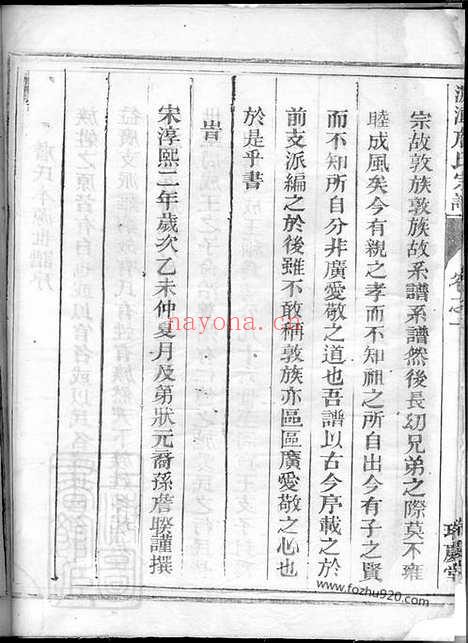 詹氏宗譜
卷之一
宗故敦族敦族故系譜系譜然後長幼兄弟之際莫不雍
睦成風矣今有親之孝而不知祖之所自出今有子之賢
而不知所自分非廣愛敬之道也吾譜以古今序載之於
前支派編之於後雖不敢稱敦族亦區區廣愛敬之心也
於是乎書
旹
宋淳熙二年歲次乙未仲夏月及第狀元裔孫詹騤謹撰
nayona.cn
www.fozhu920.com